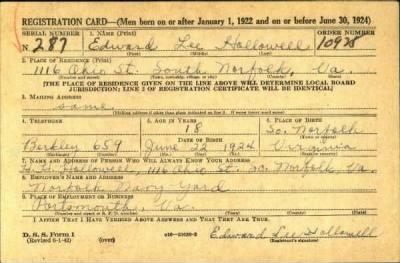 REGISTRATION CARD—(Men born on or after January 1, 1922 and on or before June 30, 1924)
SERIAL NUMBER 1. NAME (Print) ORDER NUMBER
N 287 Edward Lee Hallowell 10928
(First) (Middle) (Last)
2. PLACE OF RESIDENCE (Print)
1116 Ohio St. South Norfolk, Va.
(Number and street) (Town, township, village, or city) (County) (State)
[THE PLACE OF RESIDENCE GIVEN ON THE LINE ABOVE WILL DETERMINE LOCAL BOARD
JURISDICTION; LINE 2 OF REGISTRATION CERTIFICATE WILL BE IDENTICAL]
3. MAILING ADDRESS
same
4. TELEPHONE 5. AGE IN YEARS 6. PLACE OF BIRTH
18 So. Norfolk
DATE OF BIRTH
Berkley 659 June 22 1924 Virginia
7. NAME AND ADDRESS OF PERSON WHO WILL ALWAYS KNOW YOUR ADDRESS
Hallowell, 1116 Ohio St. So. Norfolk, Va.
8. EMPLOYER'S NAME AND ADDRESS
Norfolk Navy Yard
9. PLACE OF EMPLOYMENT OR BUSINESS
Portsmouth, Va.
(Number and street or R. F. D. number) (Town) (County) (State)
I AFFIRM THAT I HAVE VERIFIED ABOVE ANSWERS AND THAT THEY ARE TRUE.
D. S. S. Form 1
(Revised 6-1-42) (over) Edward Lee Hallowell
(Registrant's signature)